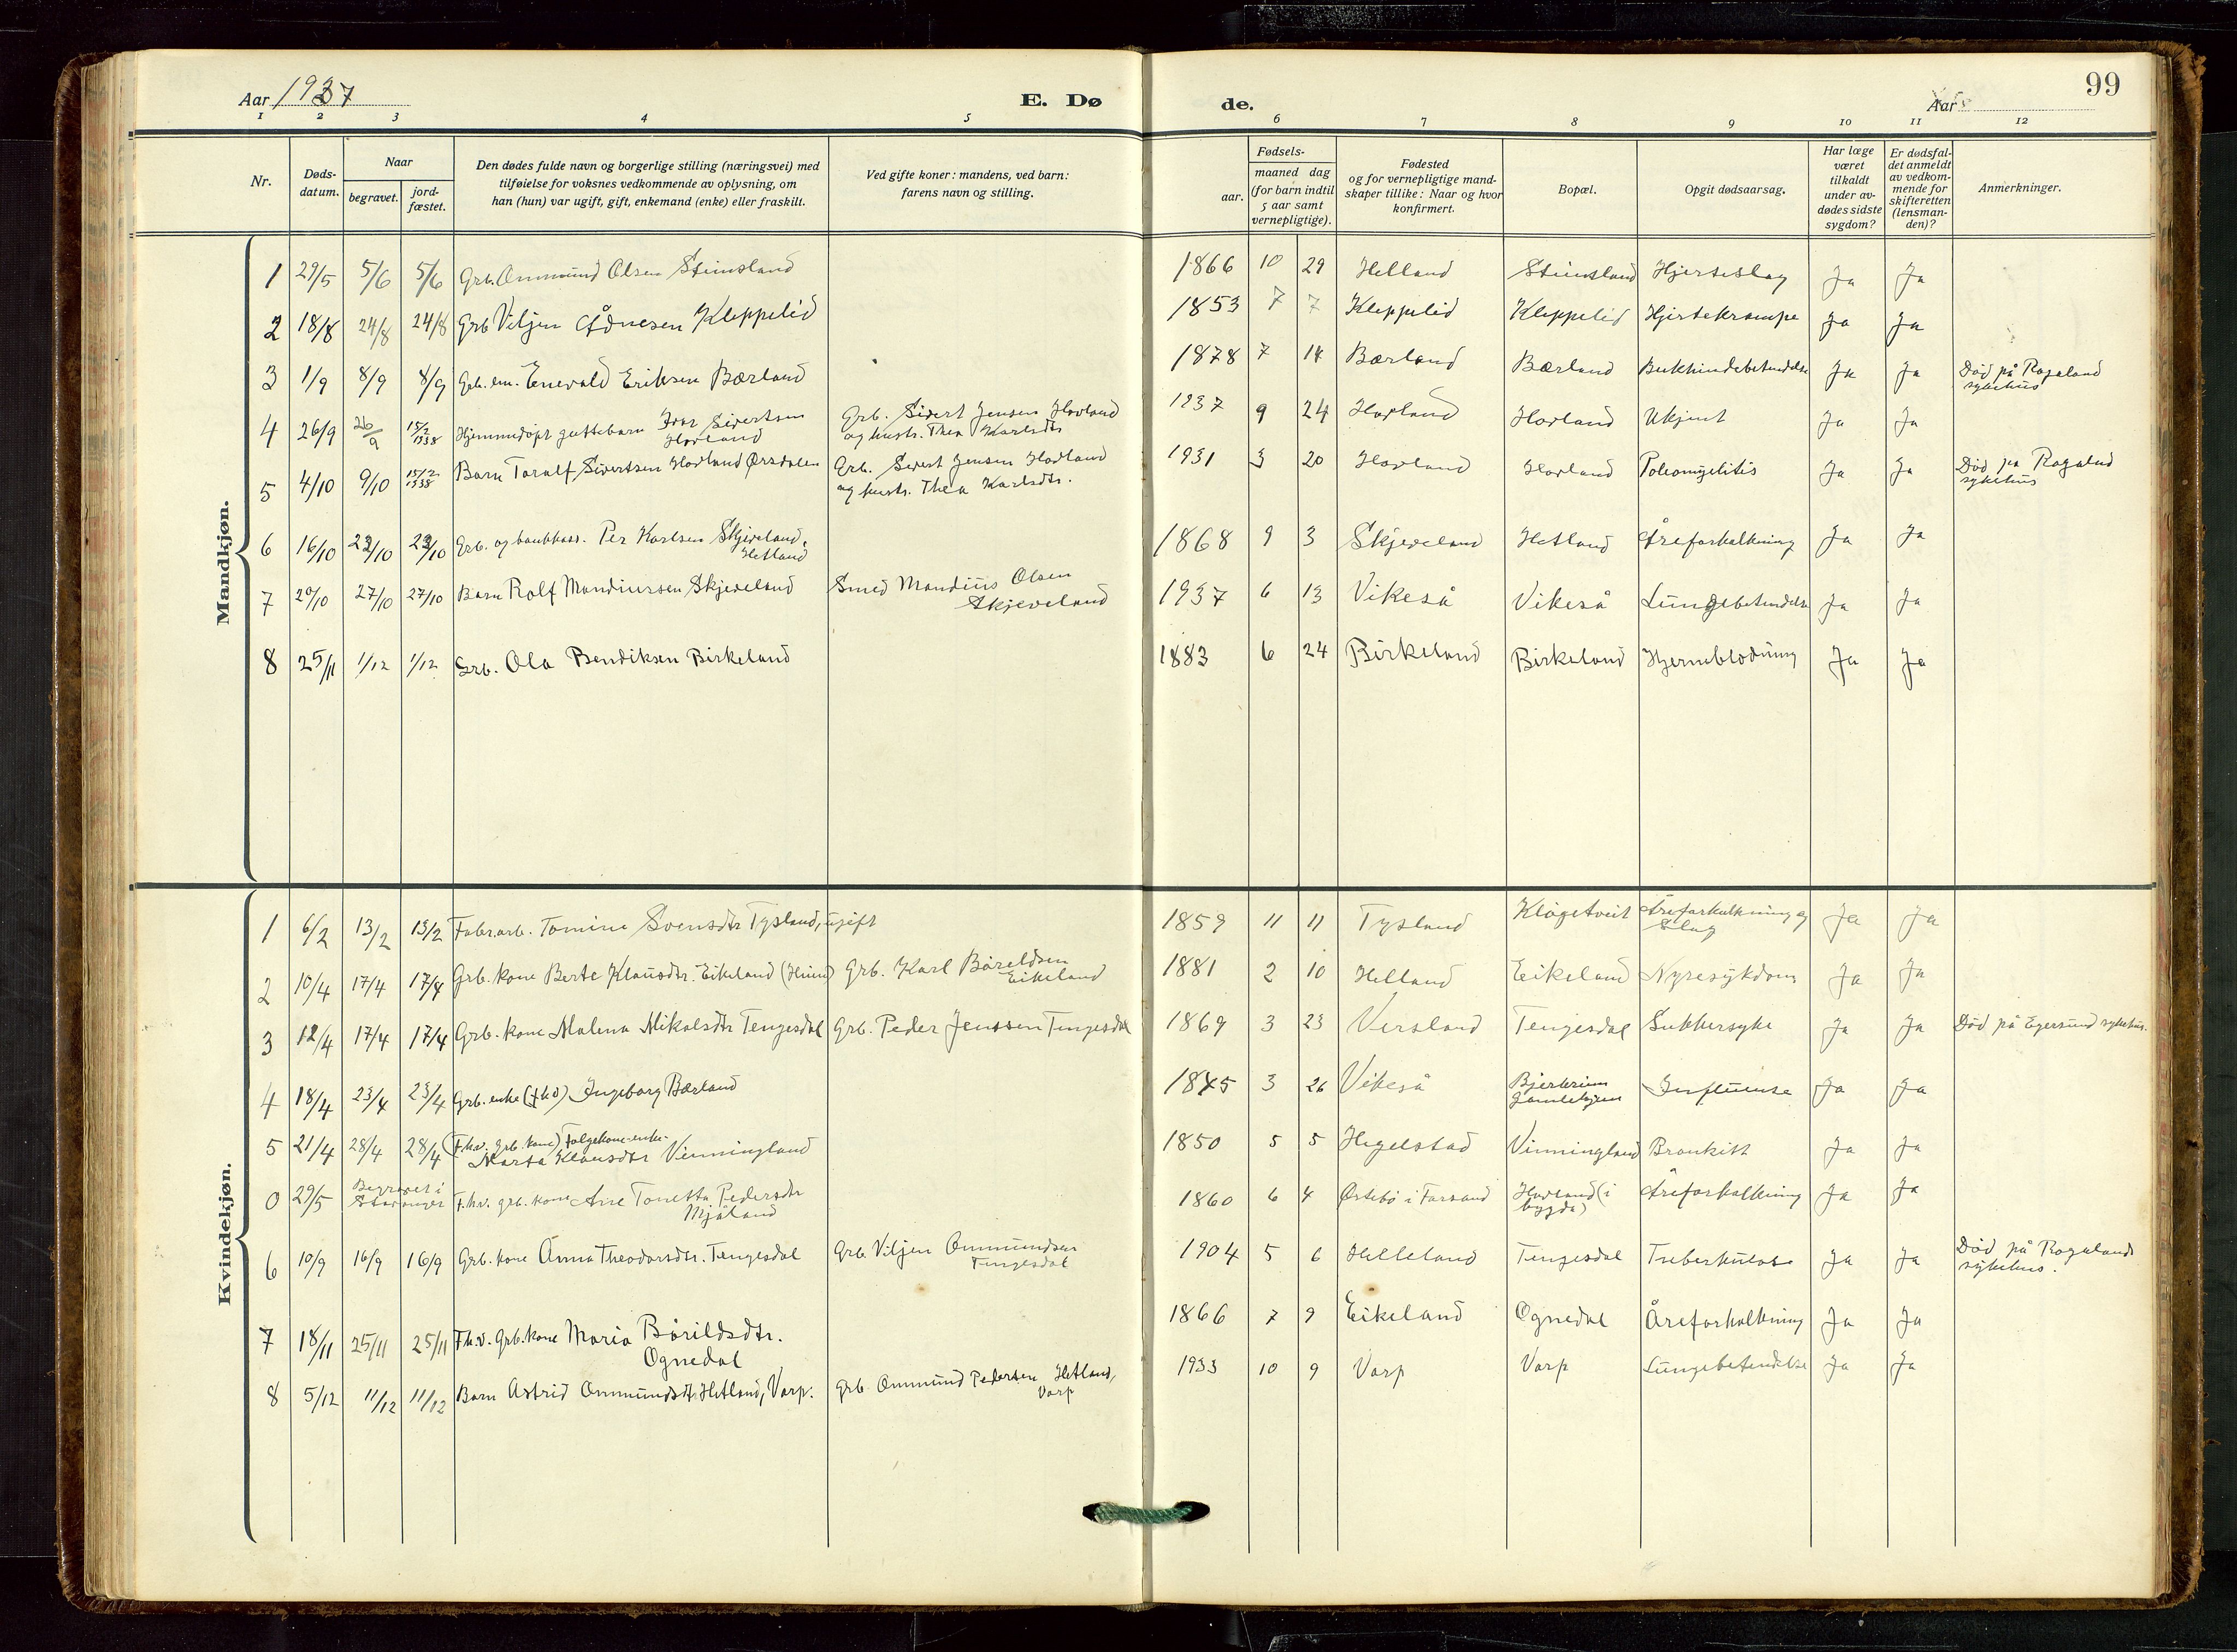 Aar 1937
E. Dø
de.
Aar
99
1 2 3 4 5 6 7 8 9 10 11 12
Nr.
Døds-
datum.
Naar
begravet.
jord-
fæstet.
Den dødes fulde navn og borgerlige stilling (næringsvei) med
tilføielse for voksnes vedkommende av oplysning, om
han (hun) var ugift, gift, enkemand (enke) eller fraskilt.
Ved gifte koner: mandens, ved barn:
farens navn og stilling.
Fødsels-
aar.
maaned dag
(for barn indtil
5 aar samt
vernepligtige).
Fødested
og for vernepligtige mand-
skaper tillike: Naar og hvor
konfirmert.
Bopæl.
Opgit dødsaarsag.
Har læge
været
tilkaldt
under av-
dødes sidste
sygdom?
Er dødsfal-
det anmeldt
av vedkom-
mende for
skifteretten
(lensman-
den)?
Anmerkninger.
Mandkjøn.
1 29/5 5/6 5/6 Grb. Ommund Olsen Stimsland 1866 10 29 Helland Stimsland Hjerteslag Ja Ja
2 18/8 24/8 24/8 Grb Viljen Ådnesen Kleppelid 1853 7 7 Kleppelid Kleppelid Hjertekrampe Ja Ja
3 1/9 8/9 8/9 Grb. em. Enevald Eriksen Bærland 1878 7 14 Bærland Bærland Bukhindebetendelse Ja Ja Død på Rogaland
sykehus
4 26/9 26/9 15/2 1938 Hjemmedøpt guttebarn Ivar Sivertsen
Hovland
Grb. Sivert Jensen Hovland
og hustr. Thea Karlsdtr
1937 9 24 Hovland Hovland Ukjent Ja Ja
5 4/10 9/10 15/2 1938 Barn Toralf Sivertsen Hovland Ørsdalen
Grb. Sivert Jensen Hovland
og hustr. Thea Karlsdtr.
1931 3 20 Hovland Hovland Poleomyelitis Ja Ja Død på Rogalnd
sykehus
6 16/10 23/10 23/10 Grb. og bankkass. Per Karlsen Skjeveland,
Hetland
1868 9 3 Skjeveland Hetland Åreforkalkning Ja Ja
7 20/10 27/10 27/10 Barn Rolf Mandiussen Skjeveland
Smed Mandius Olsen
Skjeveland
1937 6 13 Vikeså Vikeså Lungebetendelse Ja Ja
8 25/11 1/12 1/12 Grb. Ola Bendiksen Birkeland 1883 6 24 Birkeland Birkeland Hjerneblødning Ja Ja
Kvindekjøn.
1 6/2 13/2 13/2 Fabr.arb. Tomine Svensdtr Tysland, ugift 1859 11 11 Tysland Kløgetveit Åreforkalkning og
Slag
Ja Ja
2 10/4 17/4 17/4 Grb. kone Berte Klausdtr. Eikeland
Grb. Karl Båreldsen
Eikeland
1881 2 10 Helland Eikeland Nyresykdom Ja Ja
3 12/4 17/4 17/4 Grb. kone Malena Mikalsdtr Tengesdal Grb. Peder Jenssen Tengesdal 1869 3 23 Versland Tengesdal Sukkersyke Ja Ja Død på Egersund sykehus.
4 18/4 23/4 23/4 Grb. enke (fhv) Ingeborg Bærland 1845 3 26 Vikeså Bjerkreim
Gamlehjem
Influense Ja Ja
5 21/4 28/4 28/4 (F.hv. grb. kone) Følgekone-enke-
Marta Klausdtr Vinningland
1850 5 5 Hegelstad Vinningland Bronkitt Ja Ja
0 29/5 Begravet i
Stavanger
F.hv. grb. kone Ane Tonetta Pedersdtr
Mjåland
1860 6 4 Østebø i Forsand Hovland (i
bygda)
Åreforkalkning Ja Ja
6 10/9 16/9 16/9 Grb. kone Anna Theodorsdtr. Tengesdal
Grb. Viljen Ommundsen
Tengesdal
1904 5 6 Helleland Tengesdal Tuberkulose Ja Ja Død på Rogalands
sykehus.
7 18/11 25/11 25/11 F.h.v. Grb. kone Maria Bårildsdtr.
Ognedal
1866 7 9 Eikeland Ognedal Åreforkalkning Ja Ja
8 5/12 11/12 11/12 Barn Astrid Ommundsdtr Hetland, Varp.
Grb. Ommund Pedersen Hetland,
Varp
1933 10 9 Varp Varp Lungebetendelse Ja Ja